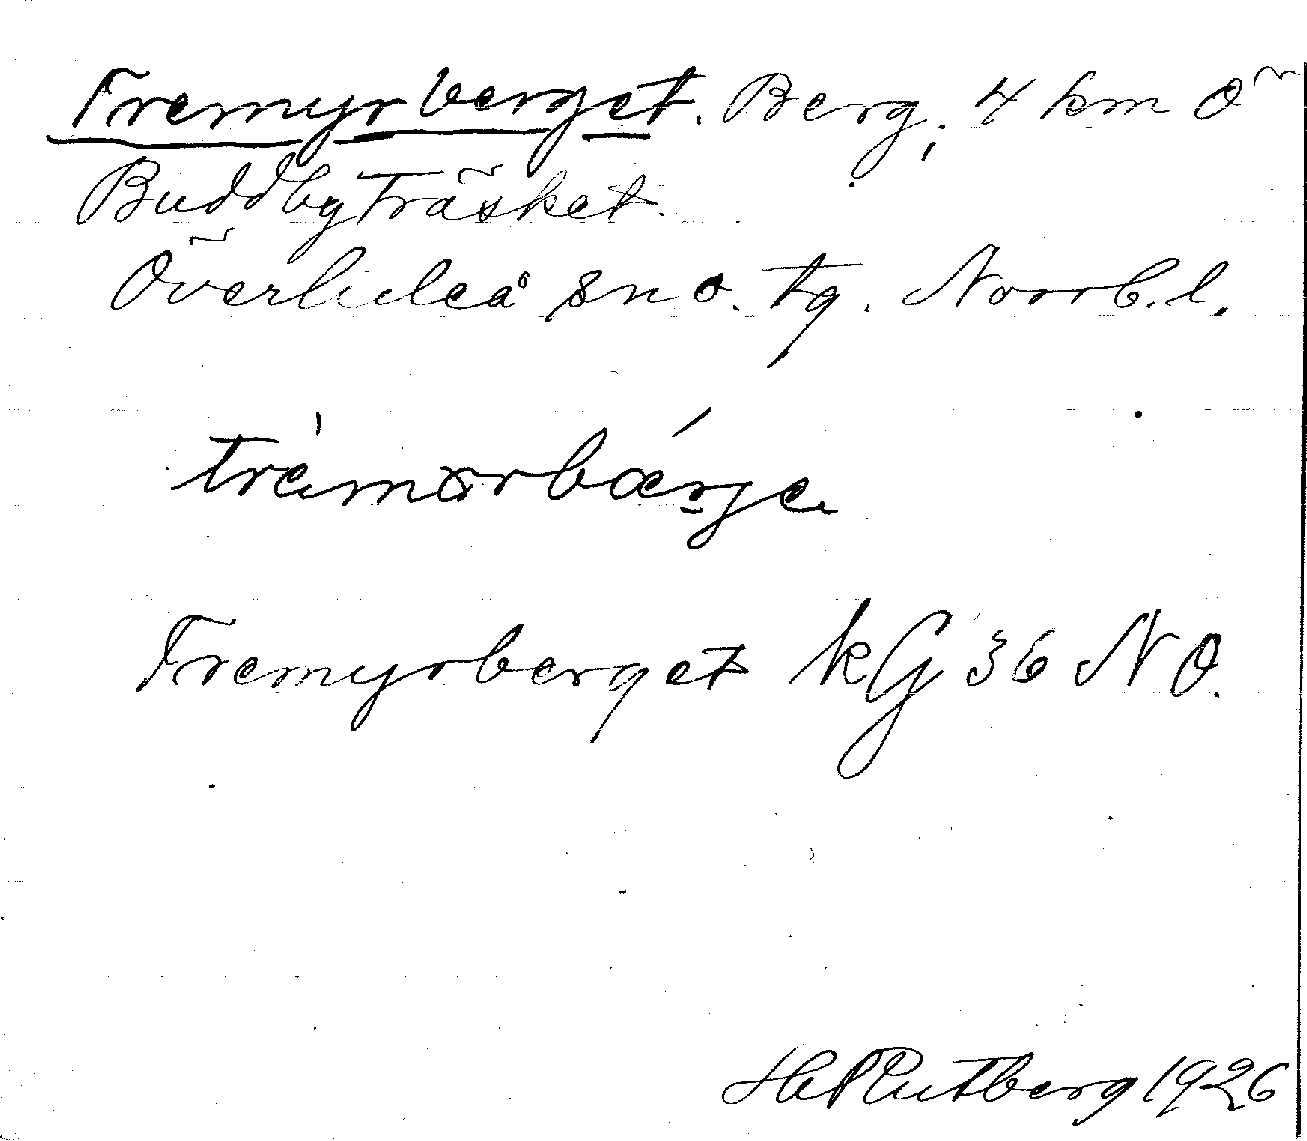 Tremyrberget. Berg; 4 km Ö
Buddbyträsket.
Överluleå sn o. tg. Norrb. l.
Tremyrberget kG 36 NO.
Rutberg 1926